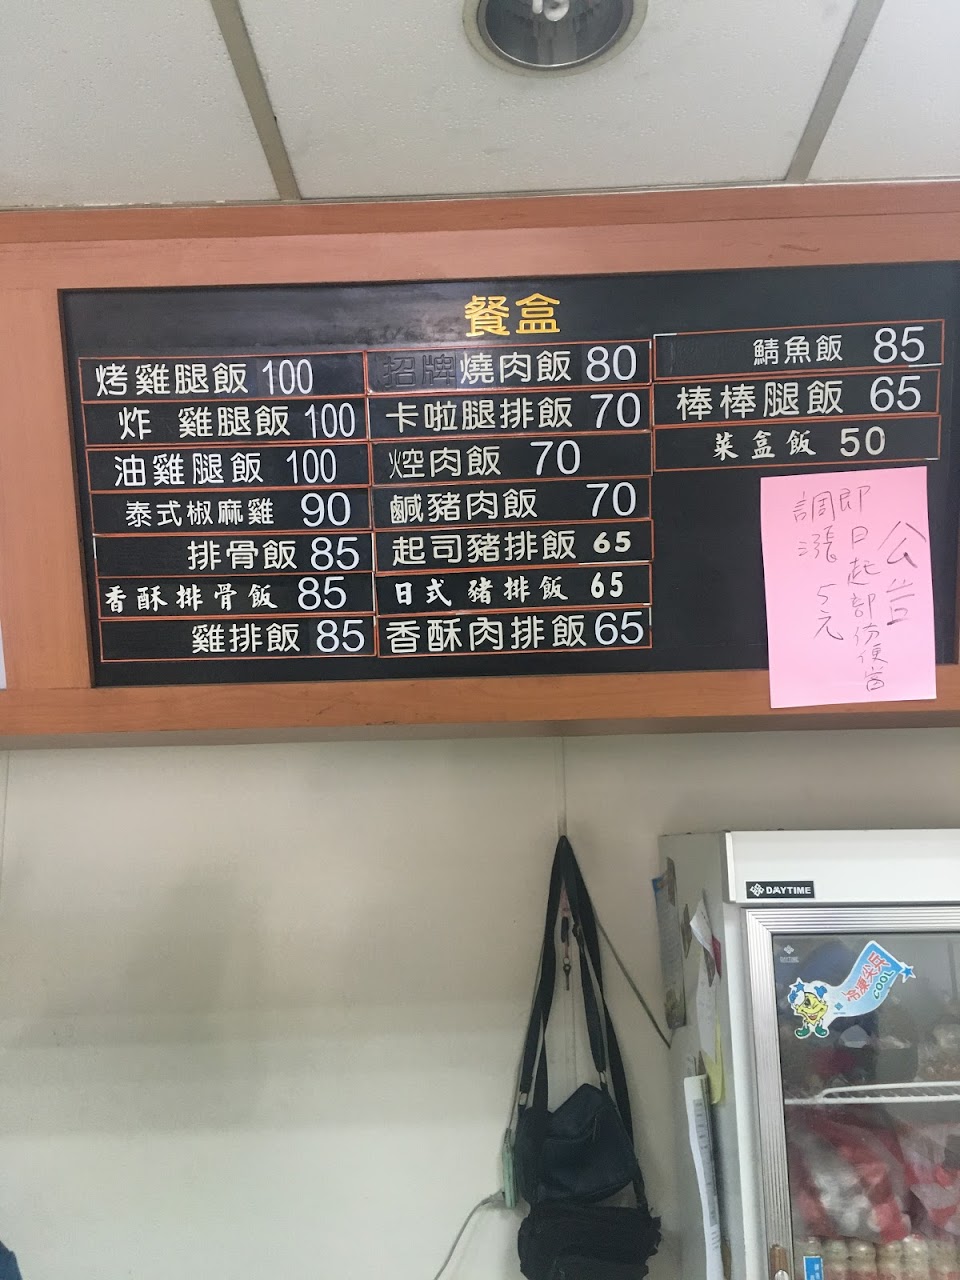 餐盒
烤雞腿飯 100
炸 雞腿飯 100
油雞腿飯 100
泰式椒麻雞 90
排骨飯 85
香酥排骨飯 85
雞排飯 85
招牌燒肉飯 80
卡啦腿排飯 70
焢肉飯 70
鹹豬肉飯 70
起司豬排飯 65
日式豬排飯 65
香酥肉排飯 65
鯖魚飯 85
棒棒腿飯 65
菜盒飯 50
公告
即日起部份便當
調漲 5元
DAYTIME
冷凍尖兵
COOL